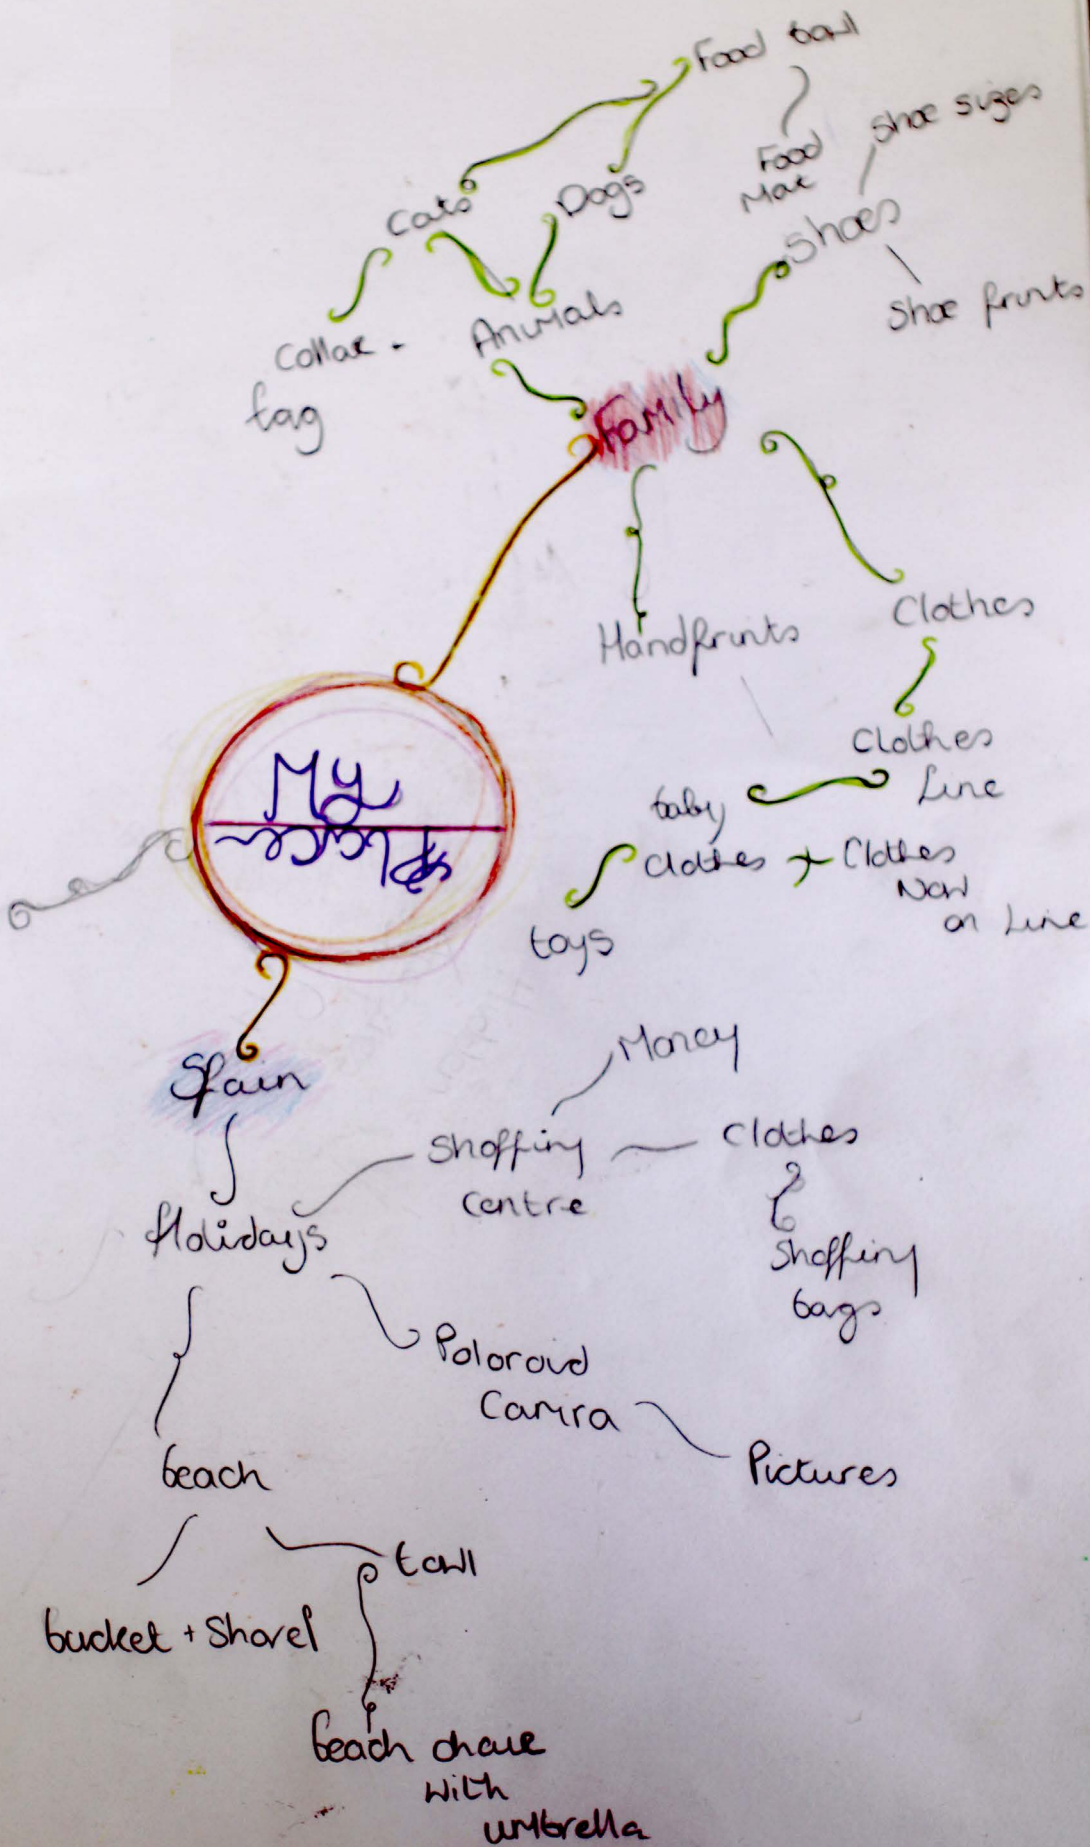 Food bowl
Shoe sizes
Food
Mat
Cats
Dogs
Shoes
Shoe prints
Collar -
tag
Animals
Family
Handprints
Clothes
Clothes
Line
baby
Clothes + Clothes
Now
on Line
toys
My
Place
Spain
Money
Shopping
Centre
Clothes
Shopping
bags
Holidays
Poloroid
Camra
Pictures
beach
towl
bucket + Shovel
beach chair
with
umbrella